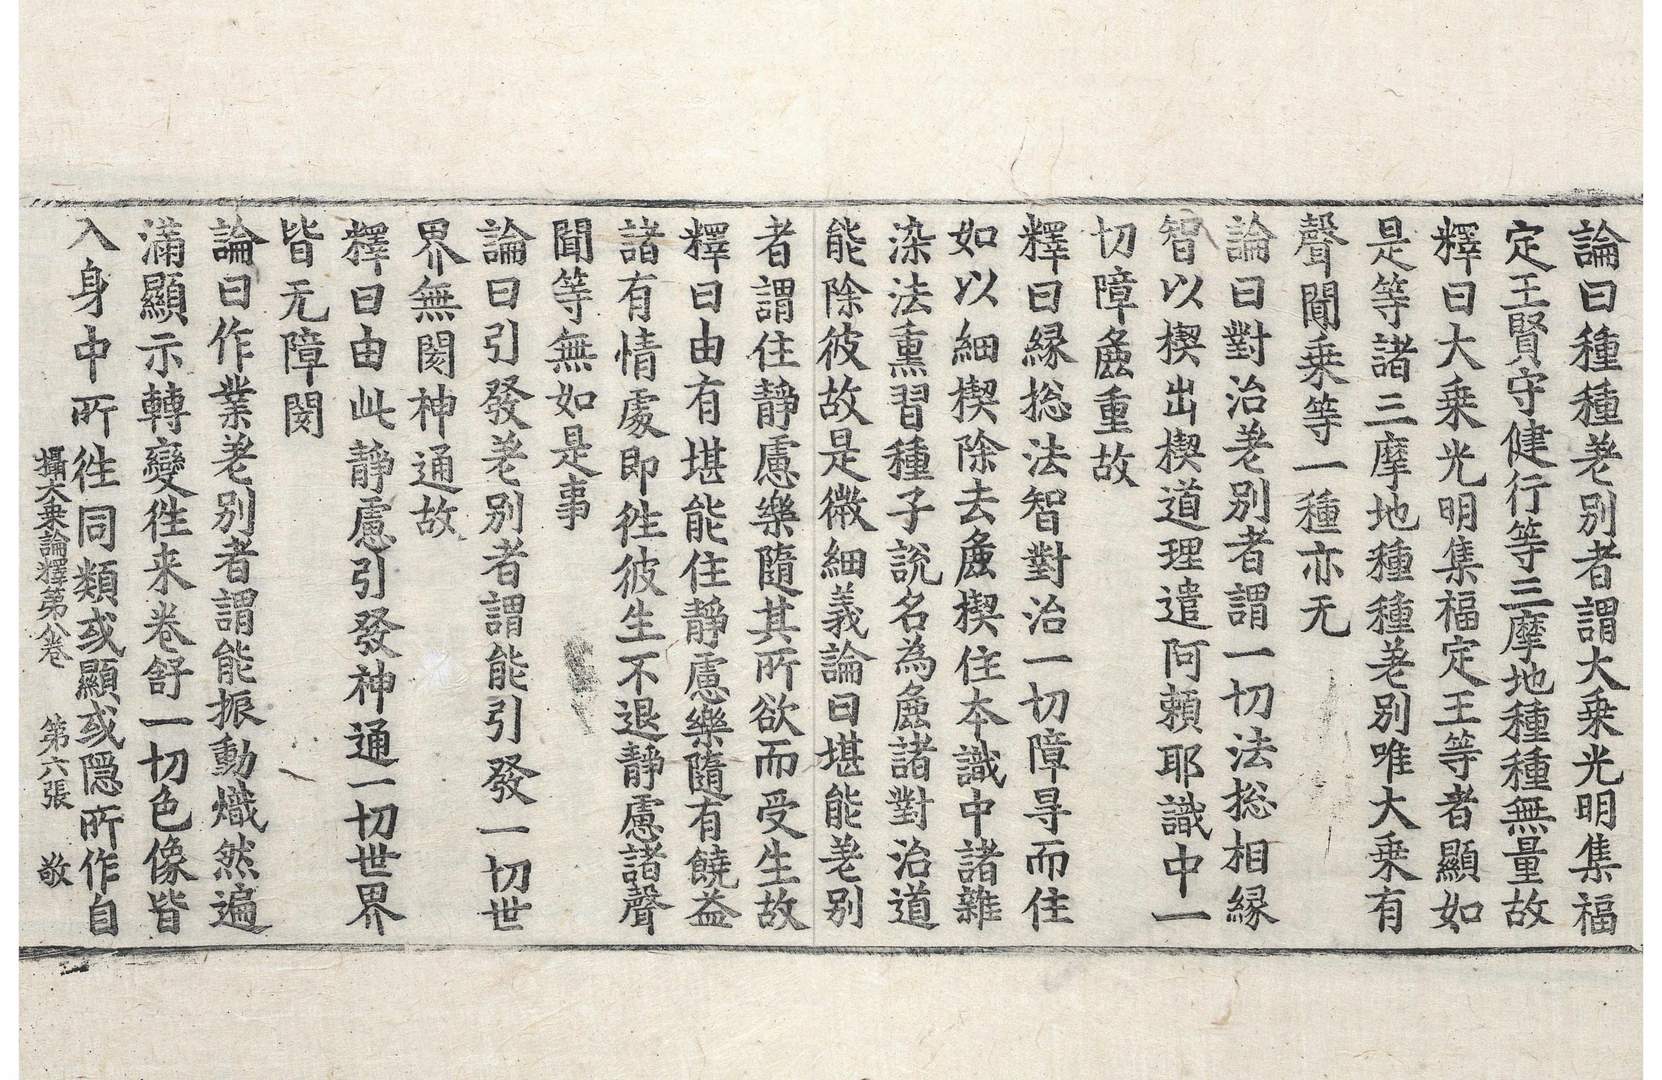 論曰種種差別者謂大乗光明集福
定王賢守健行等三摩地種種無量故
釋曰大乗光明集福定王等者顯如
是等諸三摩地種種差別唯大乗有
聲聞乗等一種亦无
論曰對治差別者謂一切法捴相縁
智以楔出楔道理遣阿頼耶識中一
切障麁重故
釋曰縁捴法智對治一切障㝵而住
如以細楔除去麁楔住本識中諸雜
染法熏習種子說名為麁諸對治道
能除彼故是微細義論曰堪能差別
者謂住靜慮樂隨其所欲而受生故
釋曰由有堪能住靜慮樂隨有饒益
諸有情處即徃彼生不退靜慮諸聲
聞等無如是事
論曰引發差別者謂能引發一切世
界無閡神通故
釋曰由此靜慮引發神通一切世界
皆无障閡
論曰作業差別者謂能振動熾然遍
滿顯示轉變徃来卷舒一切色像皆
入身中所徃同類或顯或隱所作自
攝大乗論釋第八卷　第六張　敬